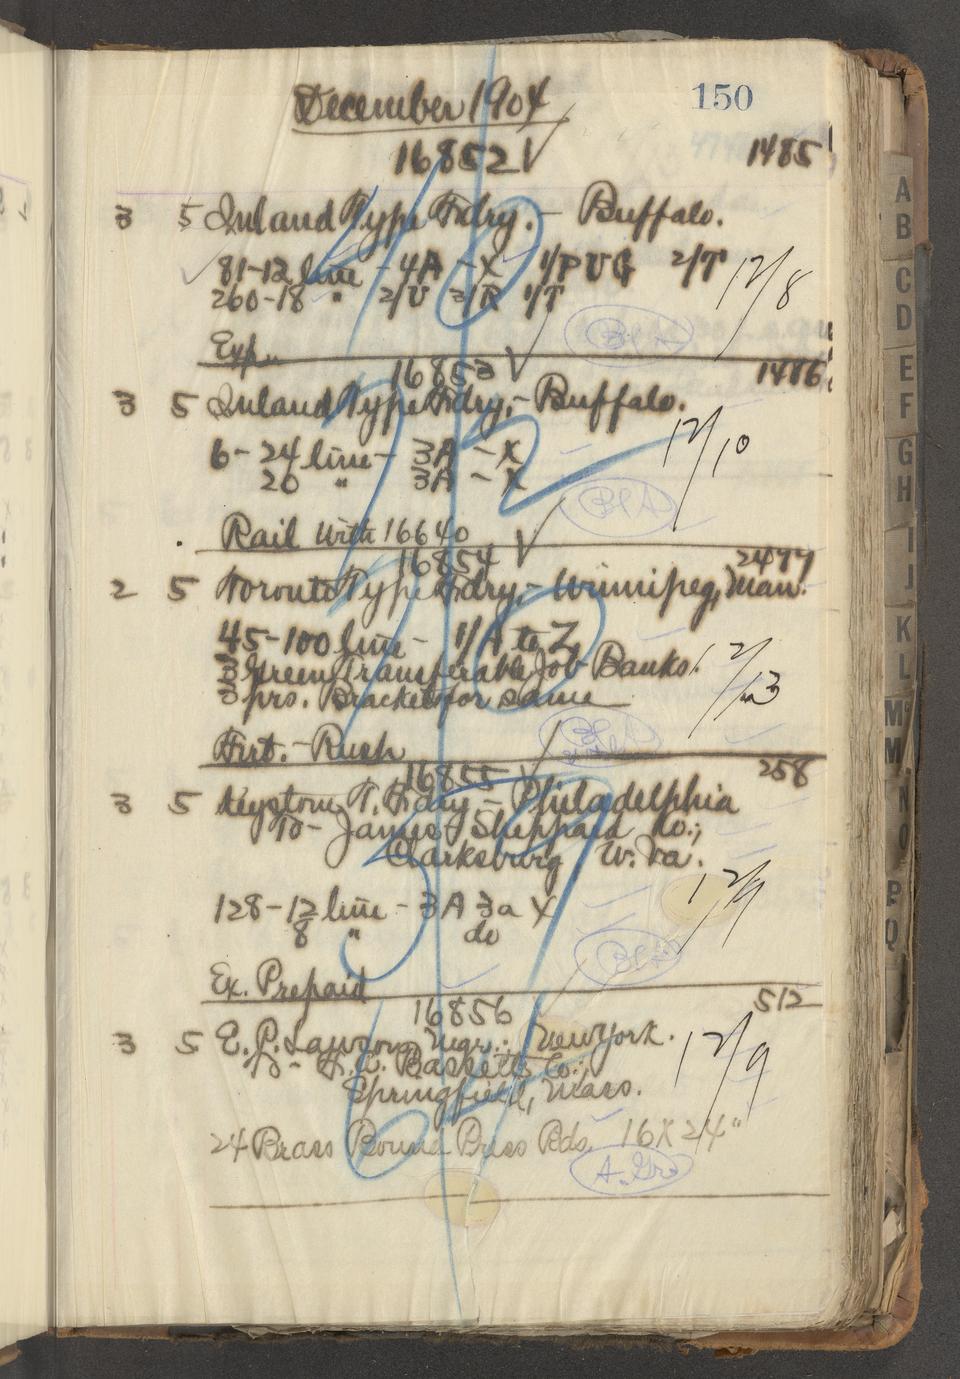 150
December 1904
16852 1485
3 5 Inland Type Fdry. - Buffalo.
81-12 line - 4A - X 1/P U G 2/T 12/8
260-18 " 2/U 2/R 1/T
Exp.
16853 1486
3 5 Inland Type Fdry, - Buffalo.
6 - 24 line - 3A - X 12/10
20 " 3A - X
Rail with 16640
16854
2 5 Toronto Type Fdry, - Winnipeg, Man.
45-100 line - 1/A to Z
3 Green Transferable Job Banks. 12/13
3 prs. Brackets for same
Frt. - Rush
16855 258
3 5 Keystone T. Fdry - Philadelphia
To - James Sheppard Co.,
Clarksburg W. Va.
128-12 line - 3A 3a X 12/9
8 " do
Ex. Prepaid
16856 512
3 5 E. P. Lawson, Mgr., New York. 12/9
To - Bassette Co.,
Springfield, Mass.
24 Brass Bound Press Bds. 16 X 24"
A
B
C
D
E
F
G
H
I
J
K
L
M
M
N
O
P
Q